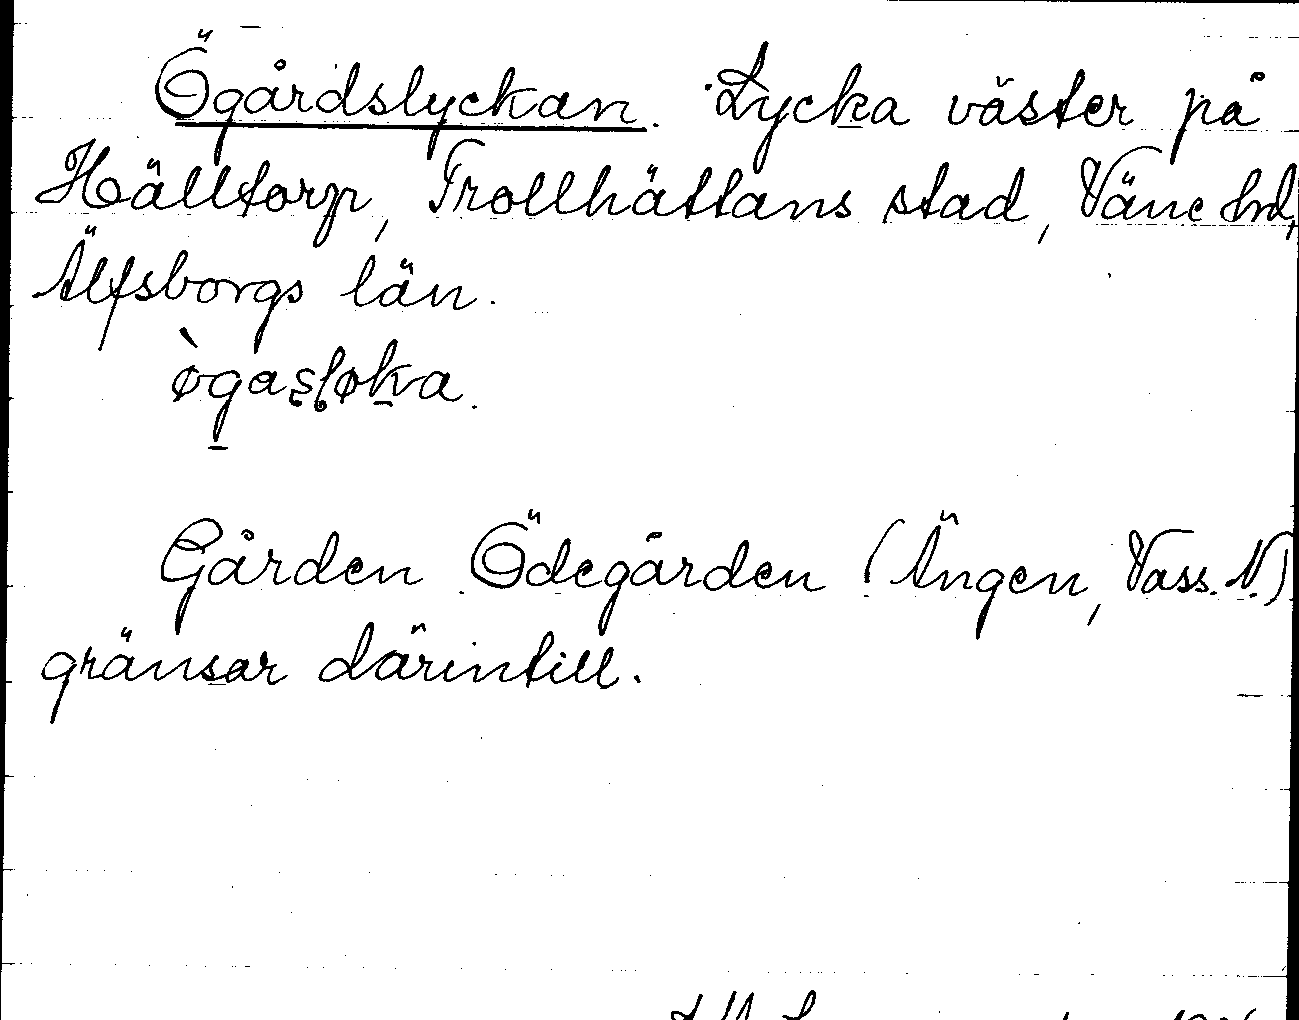 Ögårdslyckan. Lycka väster på
Hälltorp, Trollhättans stad, Väne hd,
Älfsborgs län.
ògasloka.
Gården Ödegården (Ängen, Vass. N.)
gränsar därintill.